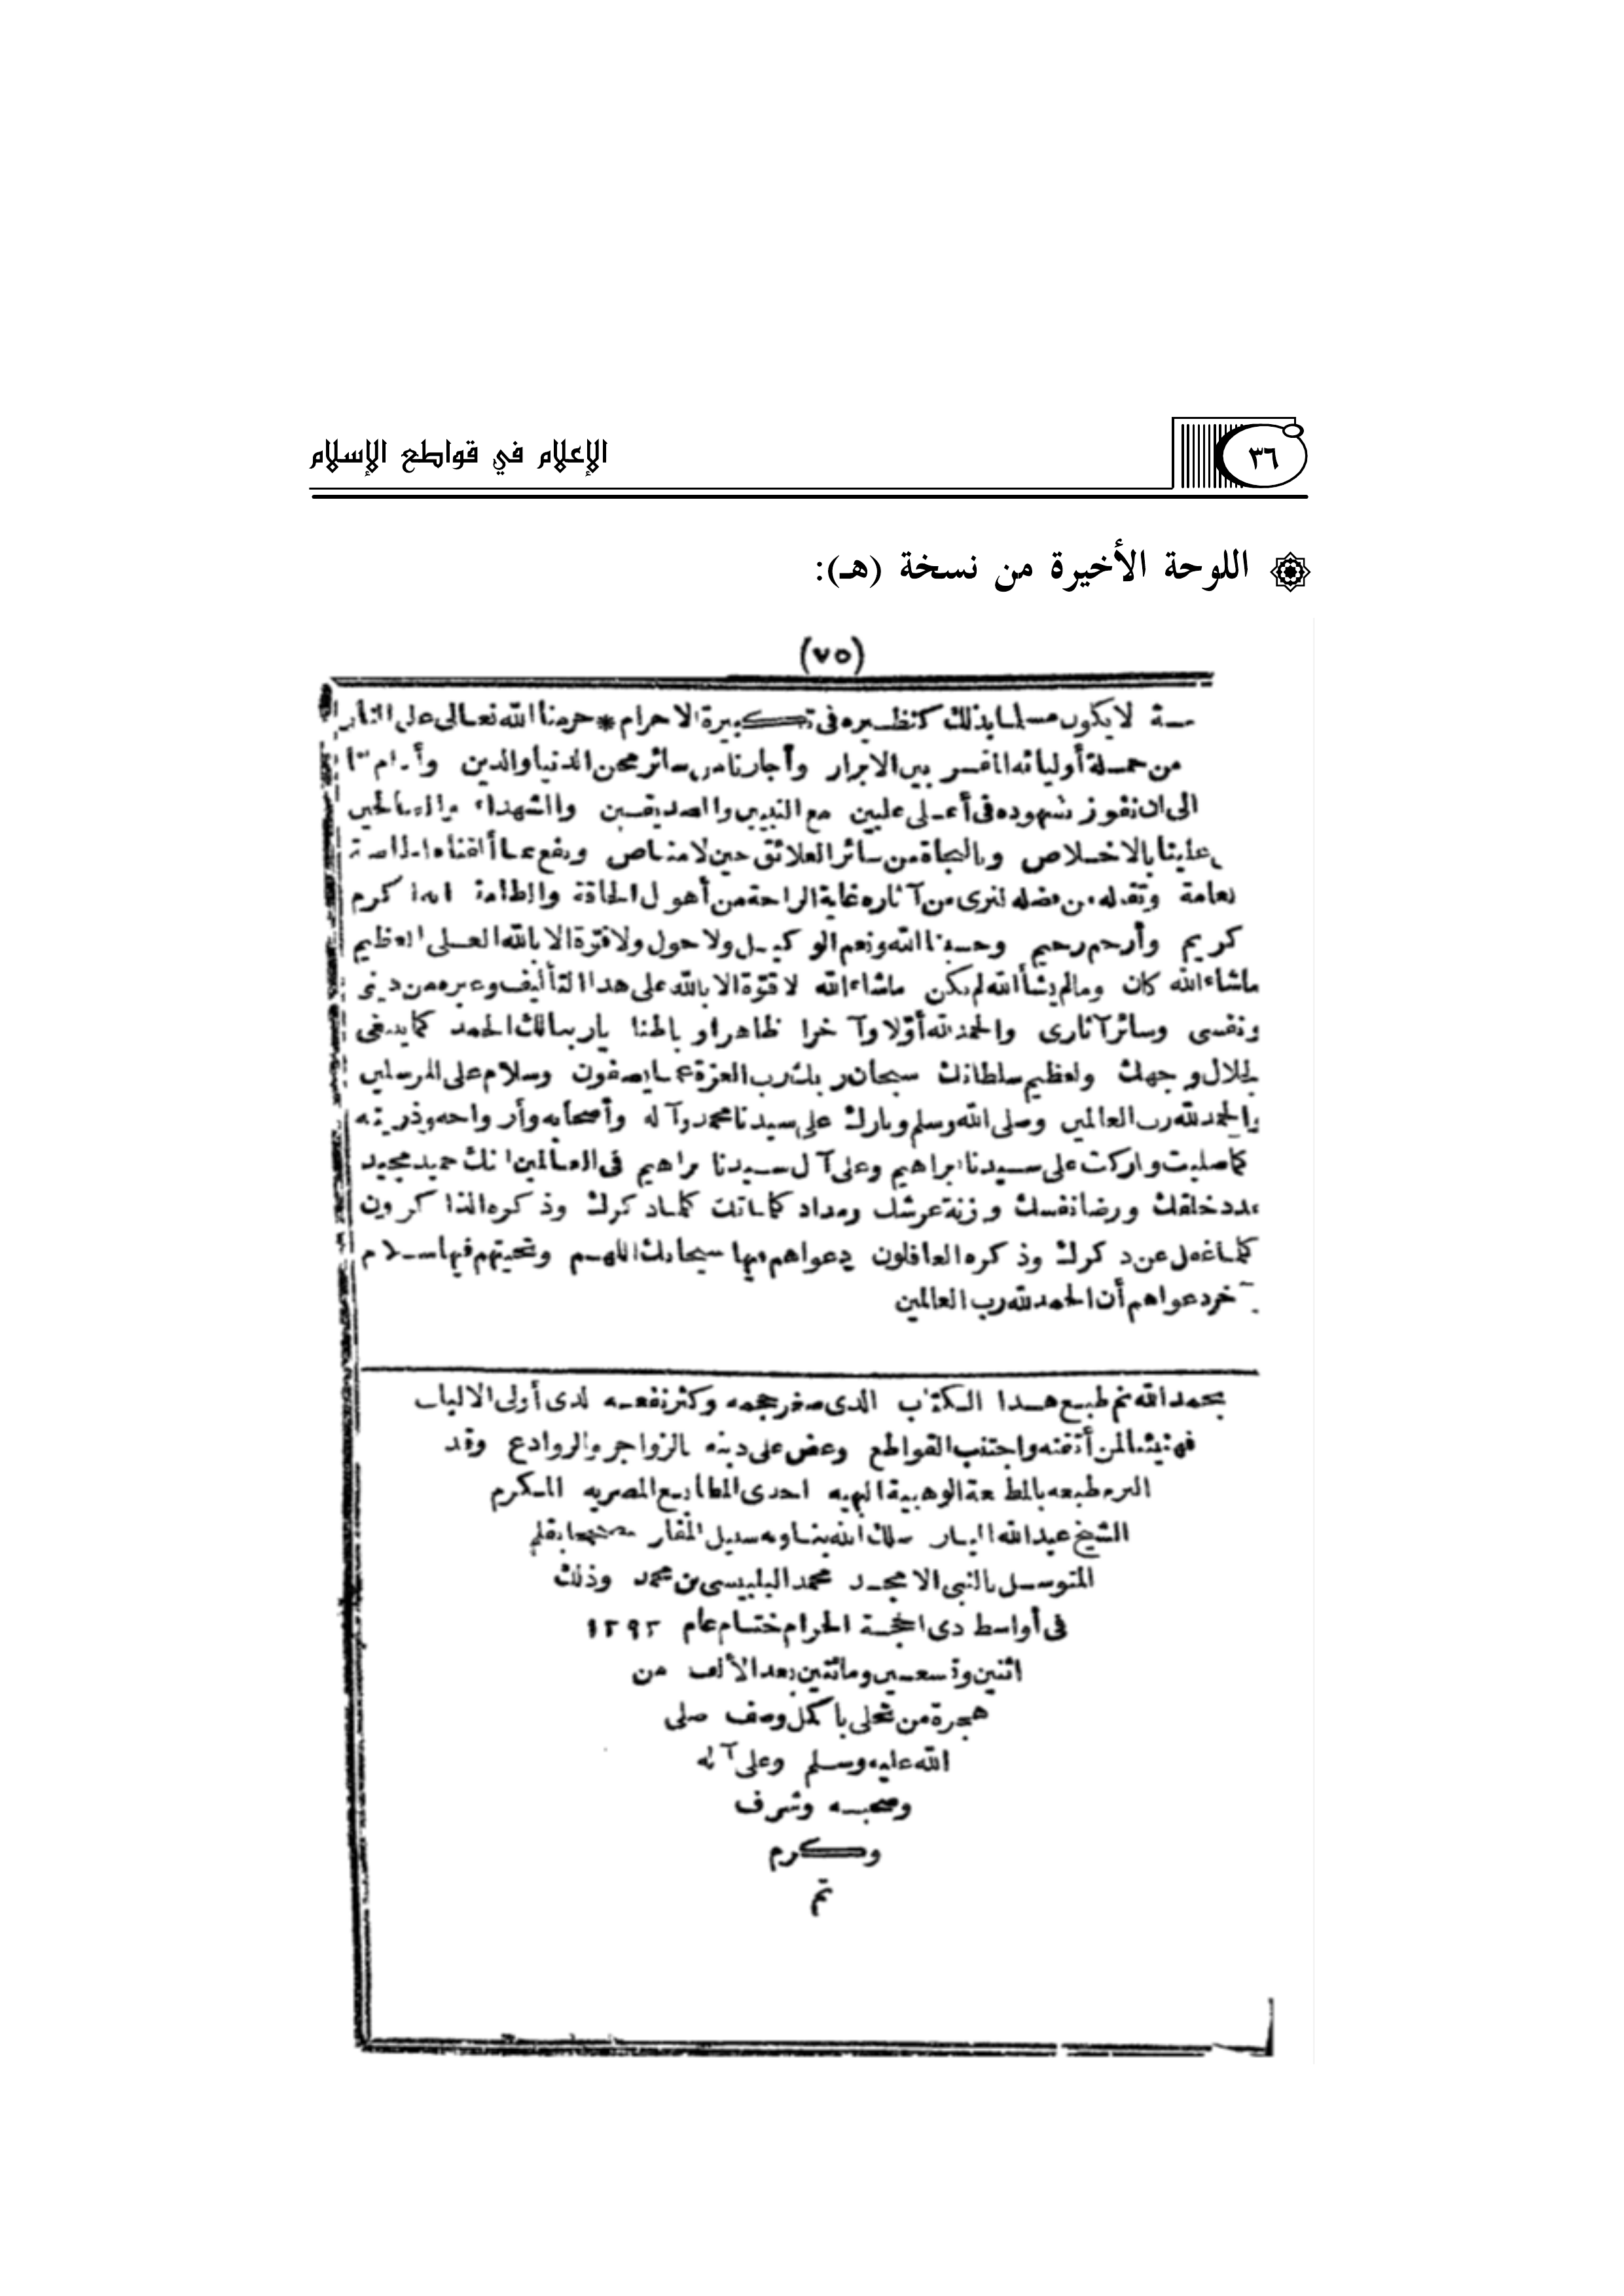 ٣٦
الإعلام في قواطع الإسلام
اللوحة الأخيرة من نسخة (هـ):
(٧٥)
لا يكون مسلما بذلك كنظيره فى تكبيرة الاحرام * حرمنا الله تعالى على النار
من جملة أوليائه المقربين الابرار وأجارنا من سائر محن الدنيا والدين وأدام لنا
الى ان نفوز شهوده فى أعلى عليين مع النبيين والصديقين والشهداء والصالحين
علينا بالاخلاص وبالنجاة من سائر العلائق حين لا مناص ونفع بما ألفناه الخاصة
وتقبله من فضله لنرى من آثاره غاية الراحة من أهول الحاقة والطامة انه أكرم
كريم وأرحم رحيم وحسبنا الله ونعم الوكيل ولا حول ولا قوة الا بالله العلى العظيم
ماشاء الله كان ومالم يشأ الله لم يكن ماشاء الله لا قوة الا بالله على هذا التأليف وغيره من دينى
ونفسى وسائر آثارى والحمد لله أولا وآخرا ظاهرا وباطنا يارب لك الحمد كما ينبغى
لجلال وجهك ولعظيم سلطانك سبحان ربك رب العزة عما يصفون وسلام على المرسلين
والحمد لله رب العالمين وصلى الله وسلم وبارك على سيدنا محمد وآله وأصحابه وأزواجه وذريته
كما صليت وباركت على سيدنا ابراهيم وعلى آل سيدنا ابراهيم فى العالمين انك حميد مجيد
عدد خلقك ورضا نفسك وزنة عرشك ومداد كلماتك كلما ذكرك وذكره الذاكرون
كلما غفل عن ذكرك وذكره الغافلون دعواهم فيها سبحانك اللهم وتحيتهم فيها سلام
آخر دعواهم أن الحمد لله رب العالمين
بحمد الله تم طبع هذا الكتاب الذى صغر حجمه وكثر نفعه لدى أولى الالباب
فهنيئا لمن أتقنه واجتنب القواطع وعض على دينه بالزواجر والروادع وقد
التزم طبعه بالمطبعة الوهبية البهيه احدى المطابع المصريه المكرم
الشيخ عبدالله الباز سلك الله بنا وبه سبيل المفاز مصححا بقلم
المتوسل بالنبى الامجد محمد البلبيسى بن محمد وذلك
فى أواسط ذى الحجة الحرام ختام عام ١٢٩٢
اثنين وتسعين ومائتين بعد الألف من
هجرة من تحلى بأكمل وصف صلى
الله عليه وسلم وعلى آله
وصحبه وشرف
وكرم
تم